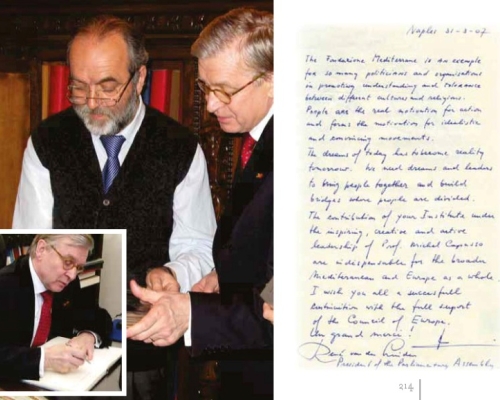 Naples 31-3-07
The Fondazione Mediterraneo is an example
for so many politicians and organisations
in promoting understanding and tolerance
between different cultures and religions.
People are the real motivation for action
and forms the motivation for idealistic
and convincing movements.
The dreams of today has to become reality
tomorrow. We need dreams and leaders
to bring people together and build
bridges where people are divided.
The contribution of your Institute under
the inspiring, creative and active
leadership of Prof. Michel Capasso
are indispensable for the broader
Mediterranean and Europe as a whole
I wish you all a successfull
continuition with the full support
of the Council of Europe.
Un grand merci!
René van der Linden
President of the Parliamentary Assembly
214